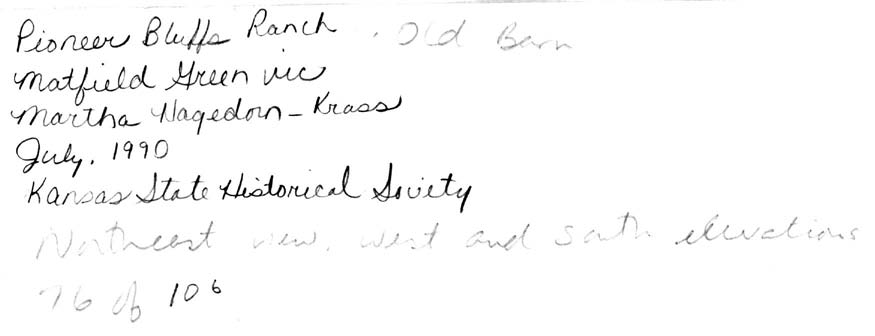 Pioneer Bluffs Ranch . Old Barn
Matfield Green vic
Martha Hagedorn-Krass
July, 1990
Kansas State Historical Society
Northeast view, west and south elevations
76 of 106